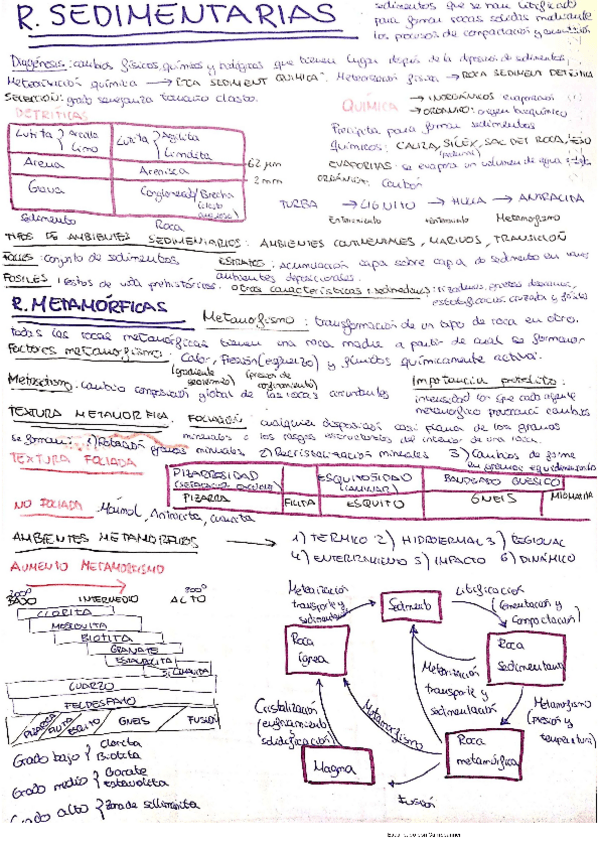 R. SEDIMENTARIAS
sedimentos que se han litificado
para formar rocas sólidas mediante
los procesos de compactación y cementación
Diagénesis: cambios físicos, químicos y biológicos que tienen lugar después de la deposición de sedimentos
Meteorización química → ROCA SEDIMENT QUIMICA. Meteorización física → ROCA SEDIMENT DETRÍTICA
SELECCIÓN: grado semejanza tamaño clasto.
QUÍMICA → INORGÁNICOS evaporación
→ ORGÁNICO: origen bioquímico
DETRÍTICAS
Precipita para formar sedimentos
químicos: CALIZA, SÍLEX, SAL DE ROCA, YESO
EVAPORITAS: se evapora un volumen de agua
ORGÁNICA: Carbón
Lutita } Arcilla
Limo
Lutita } Argilita
Limolita
Arena
Arenisca
62 µm
2 mm
Grava
Conglomerado/Brecha
Sedimento
Roca
TURBA → LIGNITO → HULLA → ANTRACITA
Enterramiento
Enterramiento
Metamorfismo
TIPOS DE AMBIENTES SEDIMENTARIOS: AMBIENTES CONTINENTALES, MARINOS, TRANSICIÓN
FACIES: conjunto de sedimentos.
ESTRATOS: acumulación capa sobre capa de sedimento en
ambientes deposicionales.
FOSILES: restos de vida prehistóricos. otras características
estratificación cruzada y
R. METAMÓRFICAS
Metamorfismo: transformación de un tipo de roca en otro.
todas las rocas metamórficas tienen una roca madre a partir de cual se formaron
Factores metamorfismo: Calor, Presión (esfuerzo) y fluidos químicamente activa.
(gradiente geotérmico)
(presión de confinamiento)
Metasomatismo: cambio composición global de las rocas
Importancia protolito:
intensidad los que cada agente
metamórfico provocará cambios
TEXTURA METAMORFICA. FOLIACIÓN: cualquier disposición casi planar de los granos
minerales o los rasgos estructurales del interior de una roca.
se forman: 1) Rotación granos minerales 2) Recristalización minerales 3) Cambios de forma
TEXTURA FOLIADA
PIZARROSIDAD
ESQUITOSIDAD
(laminar)
BANDEADO GNÉSICO
PIZARRA
FILITA
ESQUITO
GNEIS
MIGMATITA
NO FOLIADA
Mármol, Antracita, cuarcita
AMBIENTES METAMORFICOS → 1) TERMICO 2) HIDROTERMAL 3) REGIONAL
4) ENTERRAMIENTO 5) IMPACTO 6) DINÁMICO
AUMENTO METAMORFISMO
200º
700º
BAJO
INTERMEDIO
ALTO
CLORITA
MOSCOVITA
BIOTITA
GRANATE
ESTAUROLITA
SILLIMANITA
CUARZO
FELDESPATO
PIZARRA
FILITA
ESQUITO
GNEIS
FUSIÓN
Grado bajo } Clorita
Biotita
Grado medio } Granate
Estaurolita
Grado alto } Zona de sillimanita
Meteorización
transporte y
sedimentación
Sedimento
Litificación
(cementación y
compactación)
Roca
Ígnea
Roca
Sedimentaria
Meteorización
transporte y
sedimentación
Cristalización
(enfriamiento
y
solidificación)
Metamorfismo
Metamorfismo
(presión y
temperatura)
Magma
Roca
metamórfica
Fusión